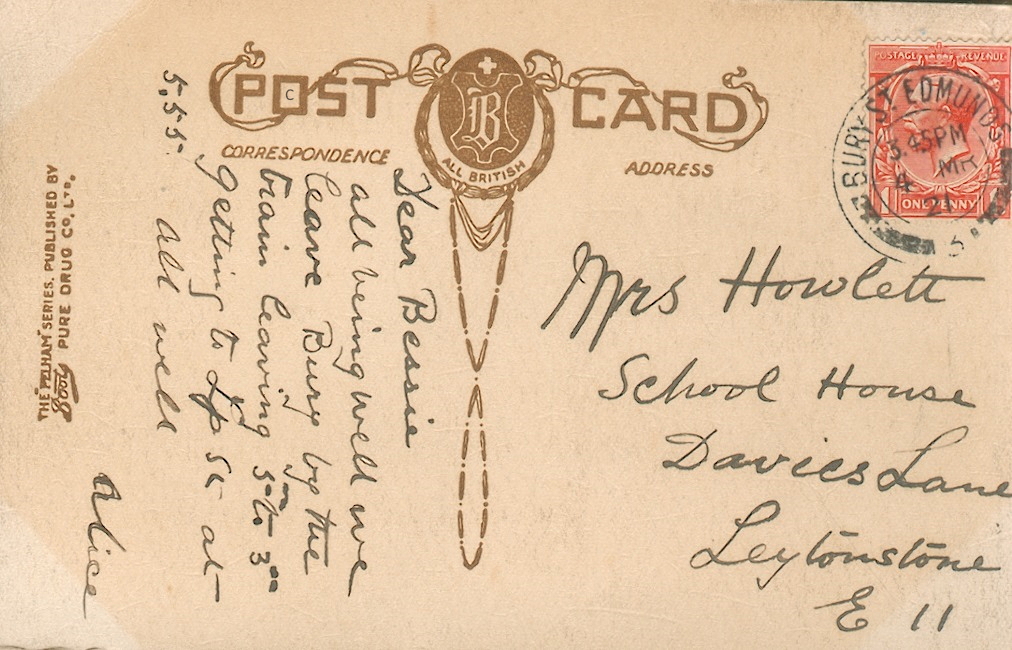 POST CARD
B
ALL BRITISH
CORRESPONDENCE
ADDRESS
POSTAGE REVENUE
ONE PENNY
BURY ST. EDMUNDS
3.45PM
4 MR
21
Dear Bessie
all being well we
leave Bury by the
train leaving 5 to 3
getting to Lp St at
5.55.
All well
Alice
Mrs Howlett
School House
Davies Lane
Leytonstone
E 11
THE "PELHAM" SERIES. PUBLISHED BY
Boots PURE DRUG CO. LTD.